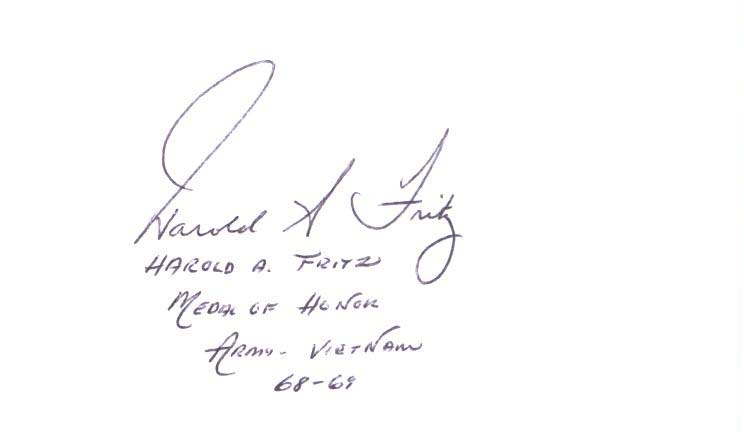 Harold A Fritz
HAROLD A. FRITZ
MEDAL OF HONOR
ARMY - VIETNAM
68-69